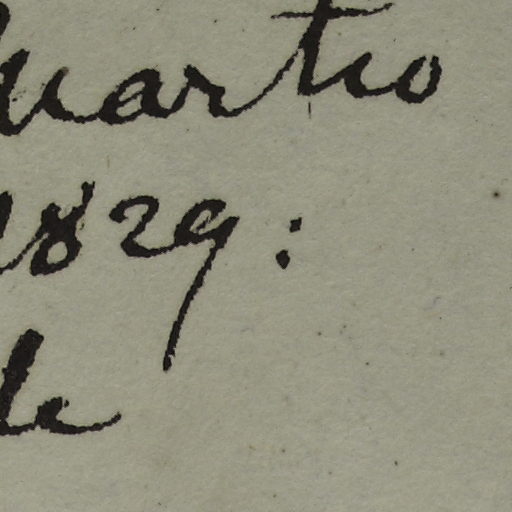 uartio
1829:
le